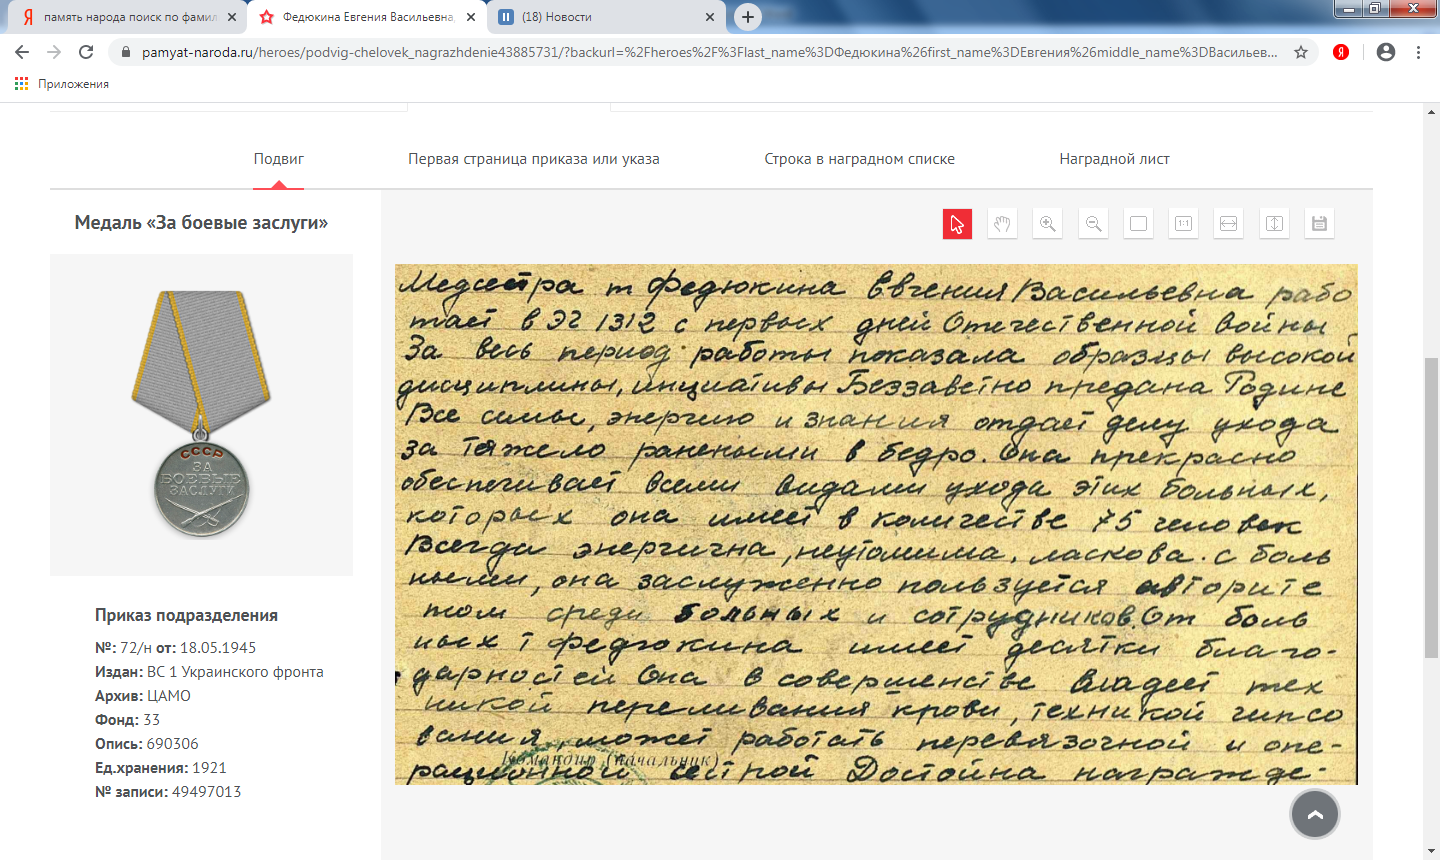 память народа поиск по фамил
Федюкина Евгения Васильевна,
(18) Новости
pamyat-naroda.ru/heroes/podvig-chelovek_nagrazhdenie43885731/?backurl=%2Fheroes%2F%3Flast_name%3DФедюкина%26first_name%3DЕвгения%26middle_name%3DВасильев...
Приложения
Подвиг
Первая страница приказа или указа
Строка в наградном списке
Наградной лист
Медаль «За боевые заслуги»
СССР
ЗА
БОЕВЫЕ
ЗАСЛУГИ
Приказ подразделения
№: 72/н от: 18.05.1945
Издан: ВС 1 Украинского фронта
Архив: ЦАМО
Фонд: 33
Опись: 690306
Ед.хранения: 1921
№ записи: 49497013
1:1
Медсестра т Федюкина Евгения Васильевна рабо
тает в ЭГ 1312 с первых дней Отечественной войны
За весь период работы показала образцы высокой
дисциплины, инциативы Беззаветно предана Родине
Все силы, энергию и знания отдает делу ухода
за тяжело ранеными в бедро. Она прекрасно
обеспечивает всеми видами ухода этих больных,
которых она имеет в количестве 75 человек
Всегда энергична, неутомима, ласкова с боль
ными, она заслуженно пользуется авторите
том среди больных и сотрудников. От боль
ных т Федюкина имеет десятки благо-
дарностей Она в совершенстве владеет тех
никой переливания крови, техникой гипсо
вания, может работать перевязочной и опе-
Командир (начальник)
рационной сестрой Достойна награжде-